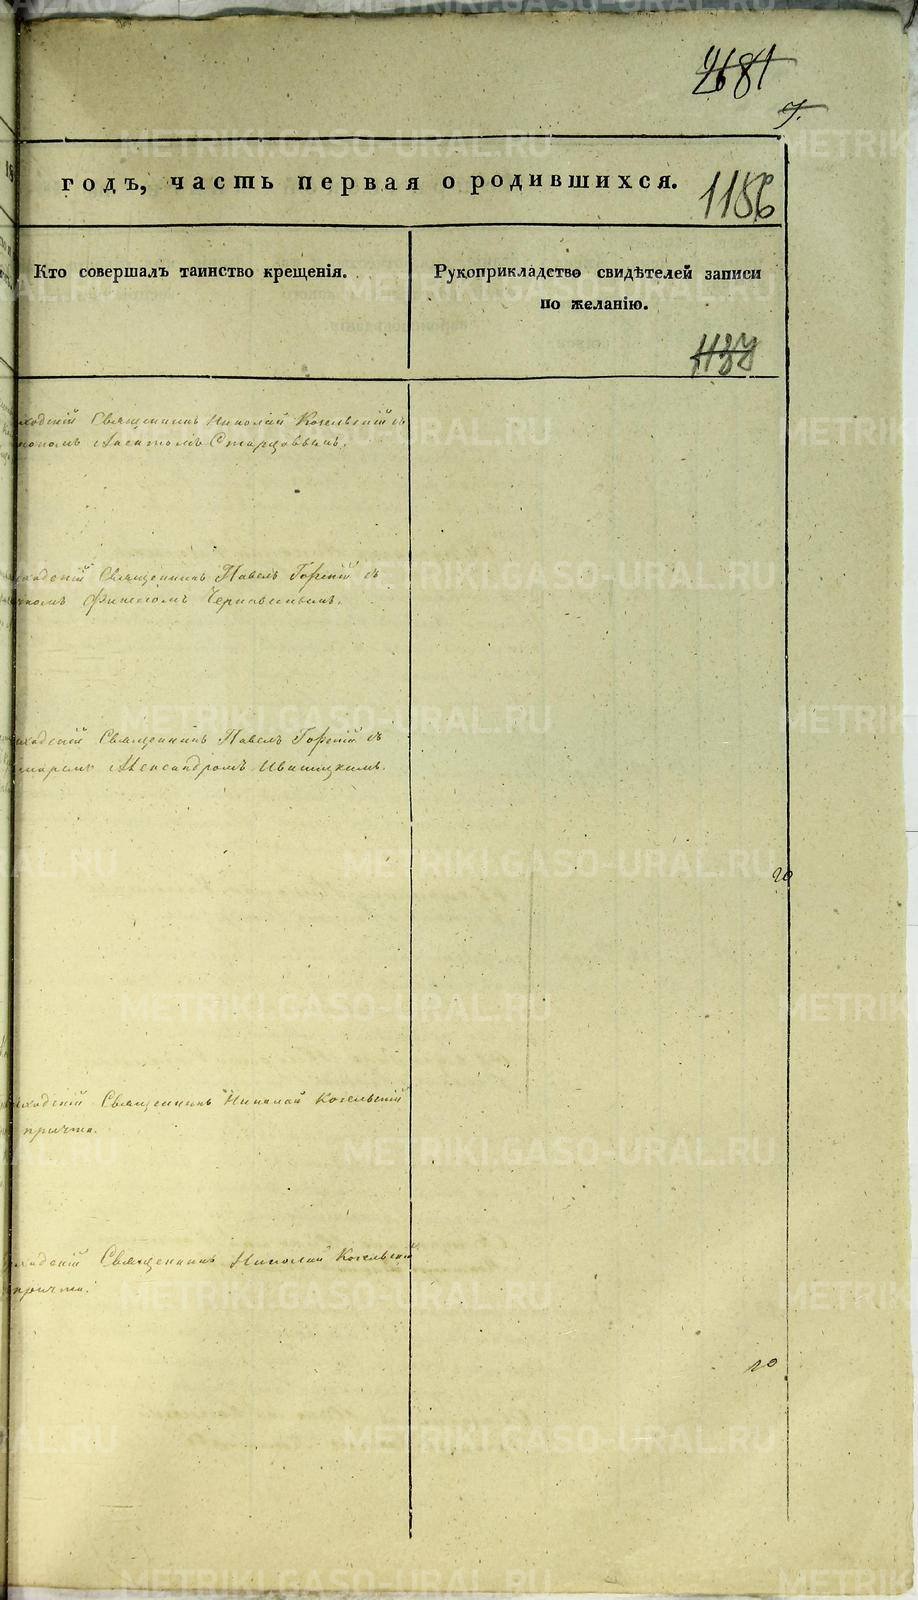 2681
7.
годъ, часть первая о родившихся.
1186
Кто совершалъ таинство крещенія.
Рукоприкладство свидѣтелей записи
по желанію.
1137
ходскій Священникъ Николай Когельскій съ
Старцовымъ.
ходскій Священникъ Павелъ Горскій съ
ходскій Священникъ Павелъ Горскій съ
Александромъ Ивановскимъ.
20
ходскій Священникъ Николай Когельскій
причта.
ходскій Священникъ Николай Когельскій
причта.
20
METRIKI.GASO-URAL.RU